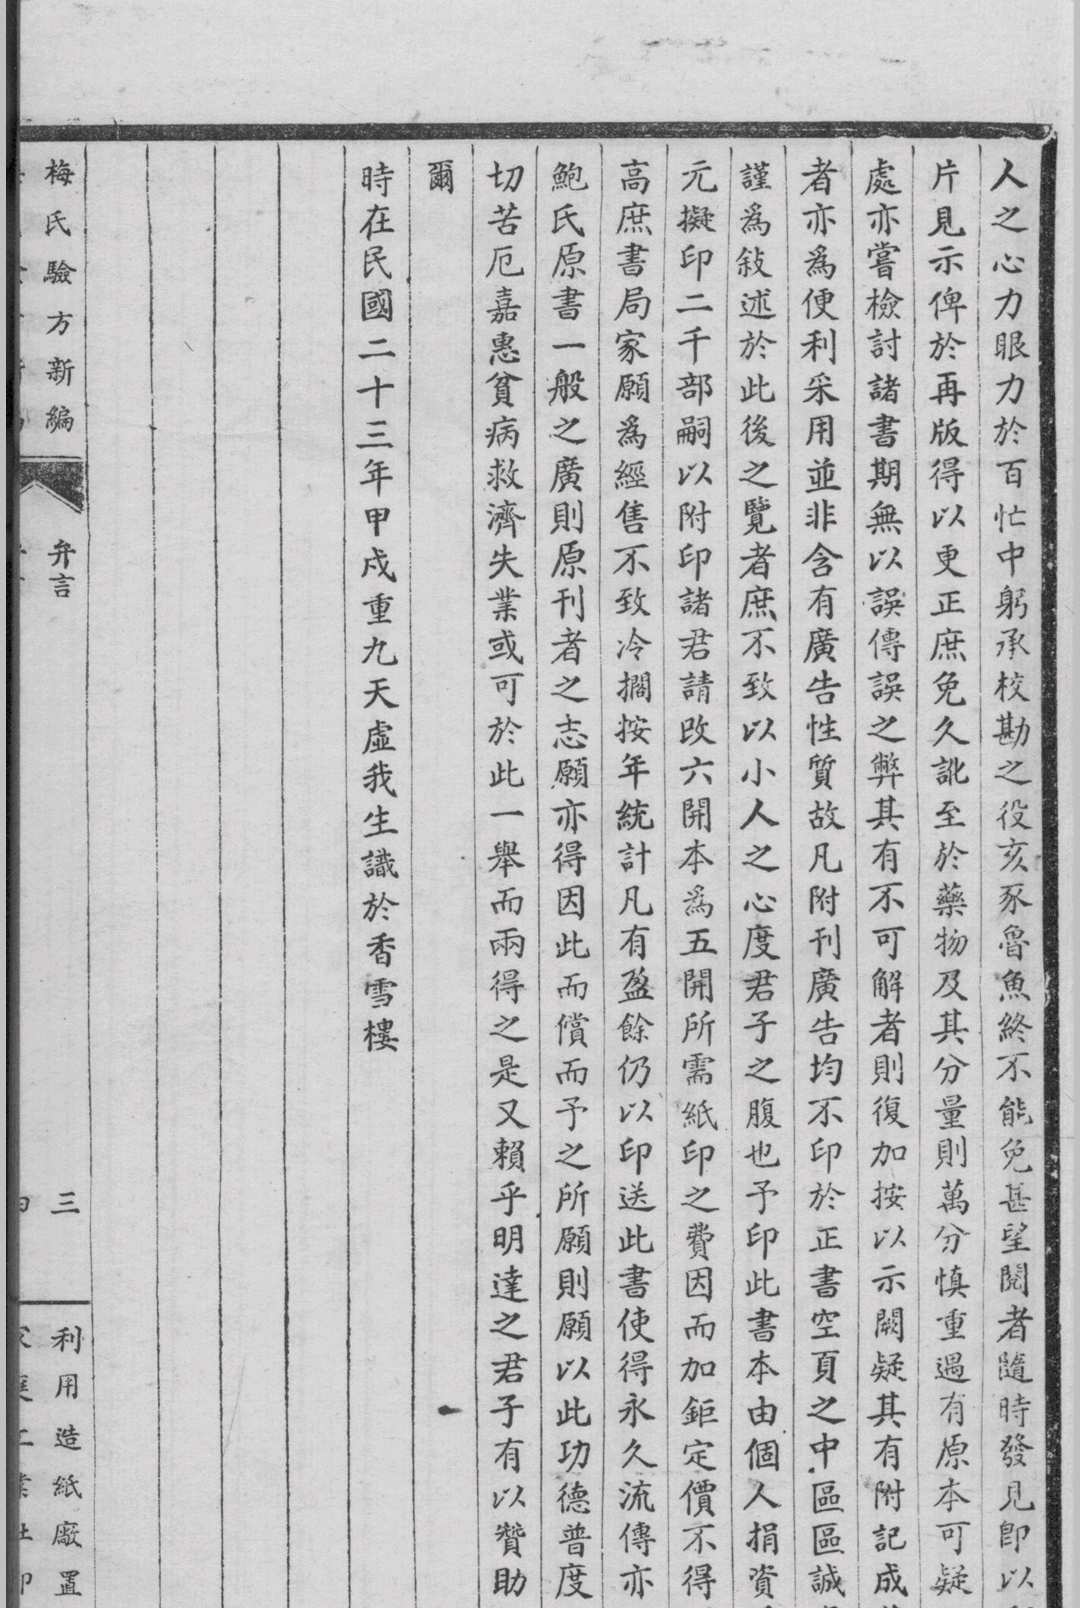 人之心力眼力於百忙中躬承校勘之役亥豕魯魚終不能免甚望閱者隨時發見卽以
片見示俾於再版得以更正庶免久訛至於藥物及其分量則萬分慎重遇有原本可疑
處亦嘗檢討諸書期無以誤傳誤之弊其有不可解者則復加按以示闕疑其有附記成
者亦為便利采用並非含有廣告性質故凡附刊廣告均不印於正書空頁之中區區誠
謹為敍述於此後之覽者庶不致以小人之心度君子之腹也予印此書本由個人捐資
元擬印二千部嗣以附印諸君請改六開本為五開所需紙印之費因而加鉅定價不得
高庶書局家願為經售不致冷擱按年統計凡有盈餘仍以印送此書使得永久流傳亦
鮑氏原書一般之廣則原刊者之志願亦得因此而償而予之所願則願以此功德普度
切苦厄嘉惠貧病救濟失業或可於此一舉而兩得之是又賴乎明達之君子有以贊助
爾
時在民國二十三年甲戍重九天虛我生識於香雪樓
梅氏驗方新編
弁言
三
利用造紙廠置